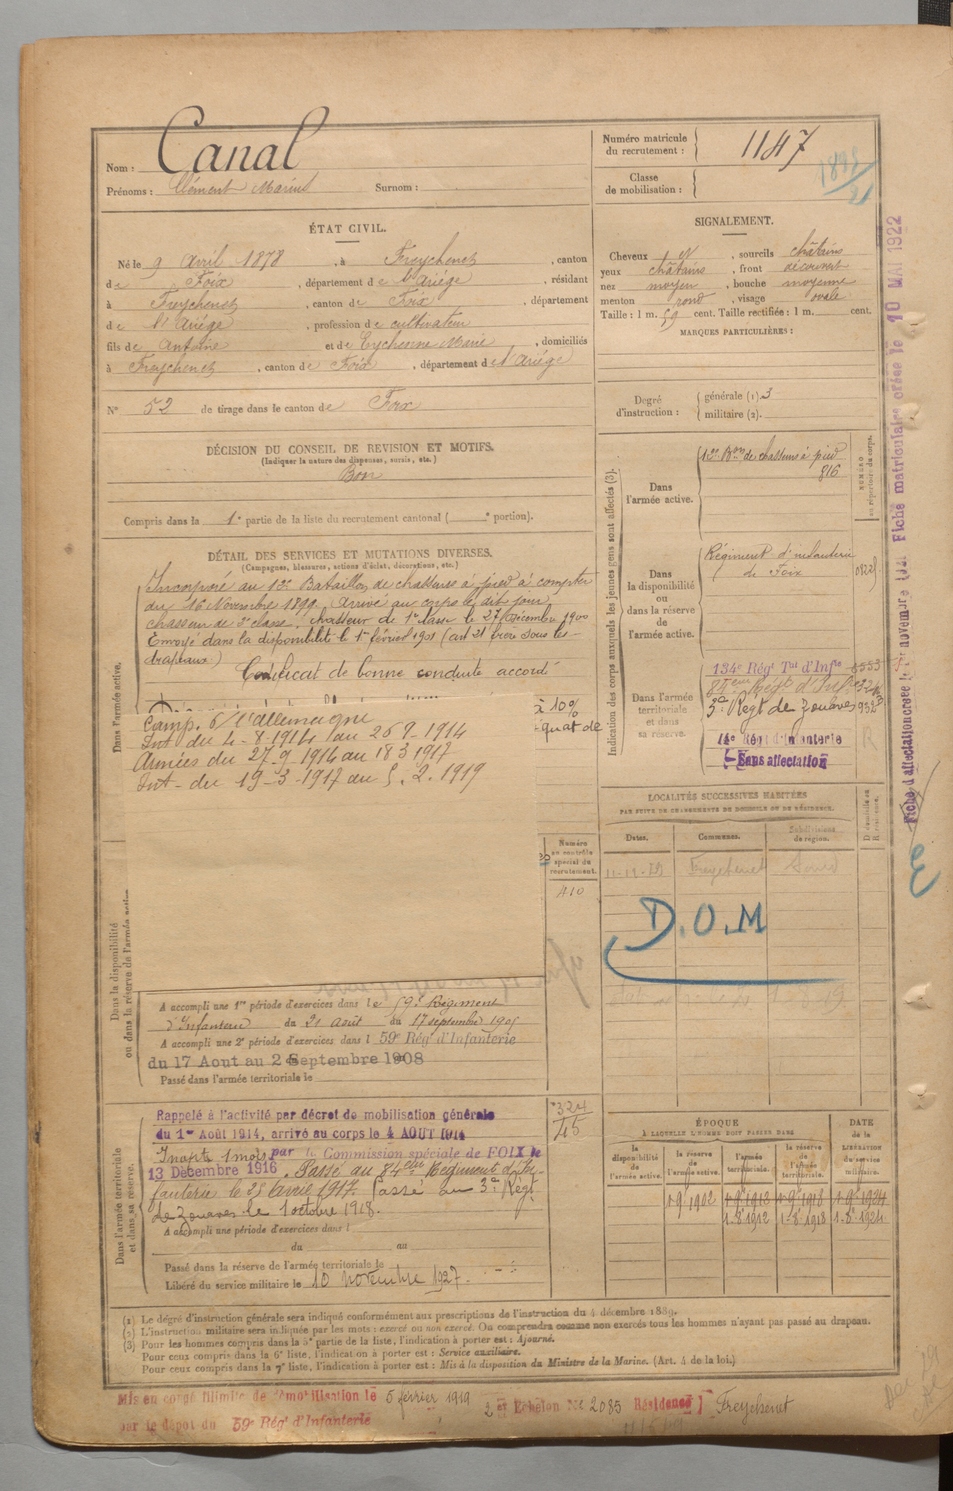 Nom : Canal
Prénoms : Clément Marius Surnom :
Numéro matricule du recrutement : 1147
Classe de mobilisation :
1898/21
ÉTAT CIVIL.
Né le 9 avril 1878, à Freychenet, canton
de Foix, département de l'Ariège, résidant
à Freychenet, canton de Foix, département
de l'Ariège, profession de cultivateur
fils de Antoine et de Eychenne Marie, domiciliés
à Freychenet, canton de Foix, département de l'Ariège
N° 52 de tirage dans le canton de Foix
SIGNALEMENT.
Cheveux et sourcils châtains
yeux châtains, front découvert
nez moyen, bouche moyenne
menton rond, visage ovale
Taille : 1 m. 59 cent. Taille rectifiée : 1 m. cent.
MARQUES PARTICULIÈRES :
Degré d'instruction : générale (1) 3
militaire (2).
DÉCISION DU CONSEIL DE REVISION ET MOTIFS.
(Indiquer la nature des dispenses, sursis, etc.)
Bon
Compris dans la 1e partie de la liste du recrutement cantonal ( e portion).
DÉTAIL DES SERVICES ET MUTATIONS DIVERSES.
(Campagnes, blessures, actions d'éclat, décorations, etc.)
Dans l'armée active.
Incorporé au 12e Bataillon de chasseurs à pied à compter
du 16 Novembre 1899. Arrivé au corps le dit jour,
chasseur de 2e classe. chasseur de 1re classe le 27 Décembre 1900
Envoyé dans la disponibilité le 1er février 1901 (art 21 frère sous les
drapeaux)
Certificat de bonne conduite accordé
à 10%
Camp. c/ l'allemagne
Int du 4-8-1914 au 26 9-1914
Armées du 27-9-1914 au 18 3 1917
Int- du 19-3-1917 au 5.2.1919
Dans la disponibilité
ou dans la réserve de l'armée active.
Numéro au contrôle spécial du recrutement.
410
A accompli une 1re période d'exercices dans le 59e Régiment
d'Infanterie du 21 août au 17 septembre 1905
A accompli une 2e période d'exercices dans l 59e Rég' d'Infanterie
du 17 Aout au 2 Septembre 1908
Passé dans l'armée territoriale le
Dans l'armée territoriale
et dans sa réserve.
324
45
Rappelé à l'activité par décret de mobilisation générale
du 1er Août 1914, arrivé au corps le 4 AOUT 1914
Inapte 1 mois par la Commission spéciale de FOIX le
13 Décembre 1916. Passé au 84ème Régiment d'In-
fanterie le 25 Avril 1917. Passé au 3e Régt
de Zouaves le 1 octobre 1918.
A accompli une période d'exercices dans l
du au
Passé dans la réserve de l'armée territoriale le
Libéré du service militaire le 10 novembre 1927.
Indication des corps auxquels les jeunes gens sont affectés (3).
NUMÉRO au répertoire du corps.
Dans l'armée active. 12e Bon de chasseurs à pied
816
Dans la disponibilité ou dans la réserve de l'armée active. Régiment d'infanterie
de Foix
Dans l'armée territoriale et dans sa réserve. 134e Régt Tal d'Infie
84ème Régt d'Infie
3e Régt de Zouaves
14e Régt d'Infanterie
Sans affectation
LOCALITÉS SUCCESSIVES HABITÉES
PAR SUITE DE CHANGEMENTS DE DOMICILE OU DE RÉSIDENCE.
Dates. Communes. Subdivisions de région. D domicile ou R résidence.
Freychenet
D.O.M
ÉPOQUE
À LAQUELLE L'HOMME DOIT PASSER DANS
la disponibilité de l'armée active. la réserve de l'armée active. l'armée territoriale. la réserve de l'armée territoriale. DATE de la LIBÉRATION du service militaire.
1-9bre 1902 1-9bre 1912 1-9bre 1918 1-9bre 1924
1-8bre 1912 1-8bre 1918 1-8bre 1924
(1) Le dégré d'instruction générale sera indiqué conformément aux prescriptions de l'instruction du 4 décembre 1889.
(2) L'instruction militaire sera indiquée par les mots : exercé ou non exercé. On comprendra comme non exercés tous les hommes n'ayant pas passé au drapeau.
(3) Pour les hommes compris dans la 5e partie de la liste, l'indication à porter est : Ajourné.
Pour ceux compris dans la 6e liste, l'indication à porter est : Service auxiliaire.
Pour ceux compris dans la 7e liste, l'indication à porter est : Mis à la disposition du Ministre de la Marine. (Art. 4 de la loi.)
Mis en congé illimité de démobilisation le 5 février 1919 2e Echelon No 2085 Résidence Freychenet
par le dépôt du 59e Rég' d'Infanterie
Fiche matriculaire créée le 10 MAI 1922